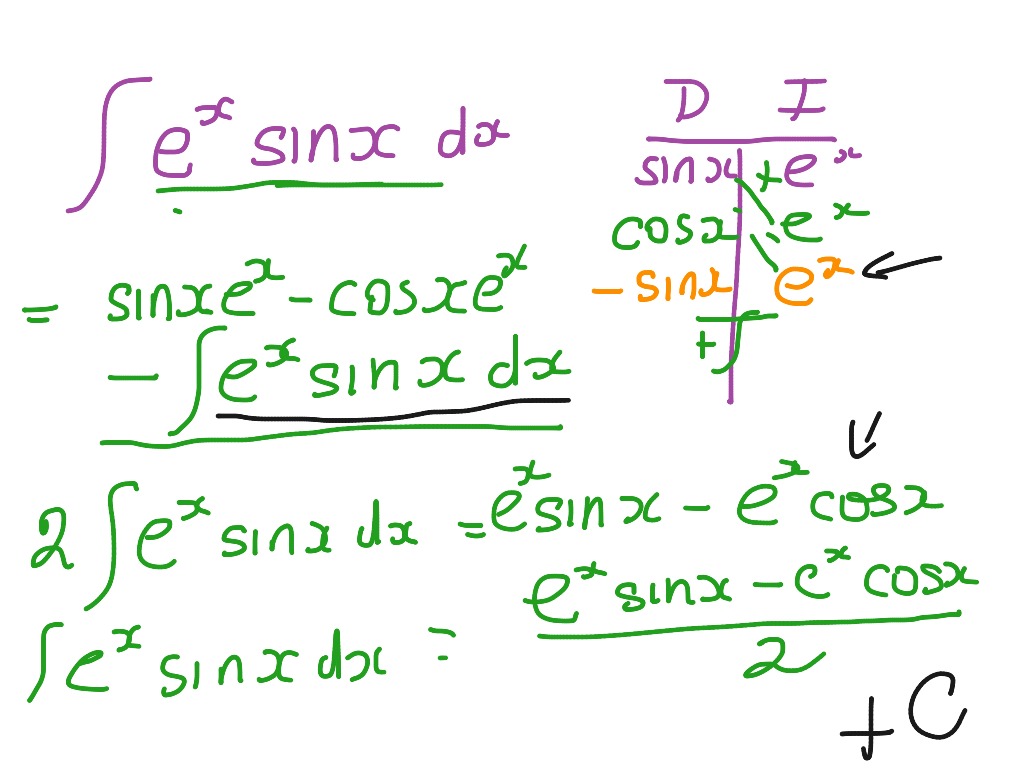 ∫ eˣ sinx dx
D I
sinx + eˣ
cosx - eˣ
- sinx eˣ
+
= sinxeˣ - cosxeˣ
- ∫ eˣ sinx dx
2 ∫ eˣ sinx dx = eˣsinx - eˣ cosx
∫ eˣ sinx dx = (eˣ sinx - eˣ cosx) / 2
+ C